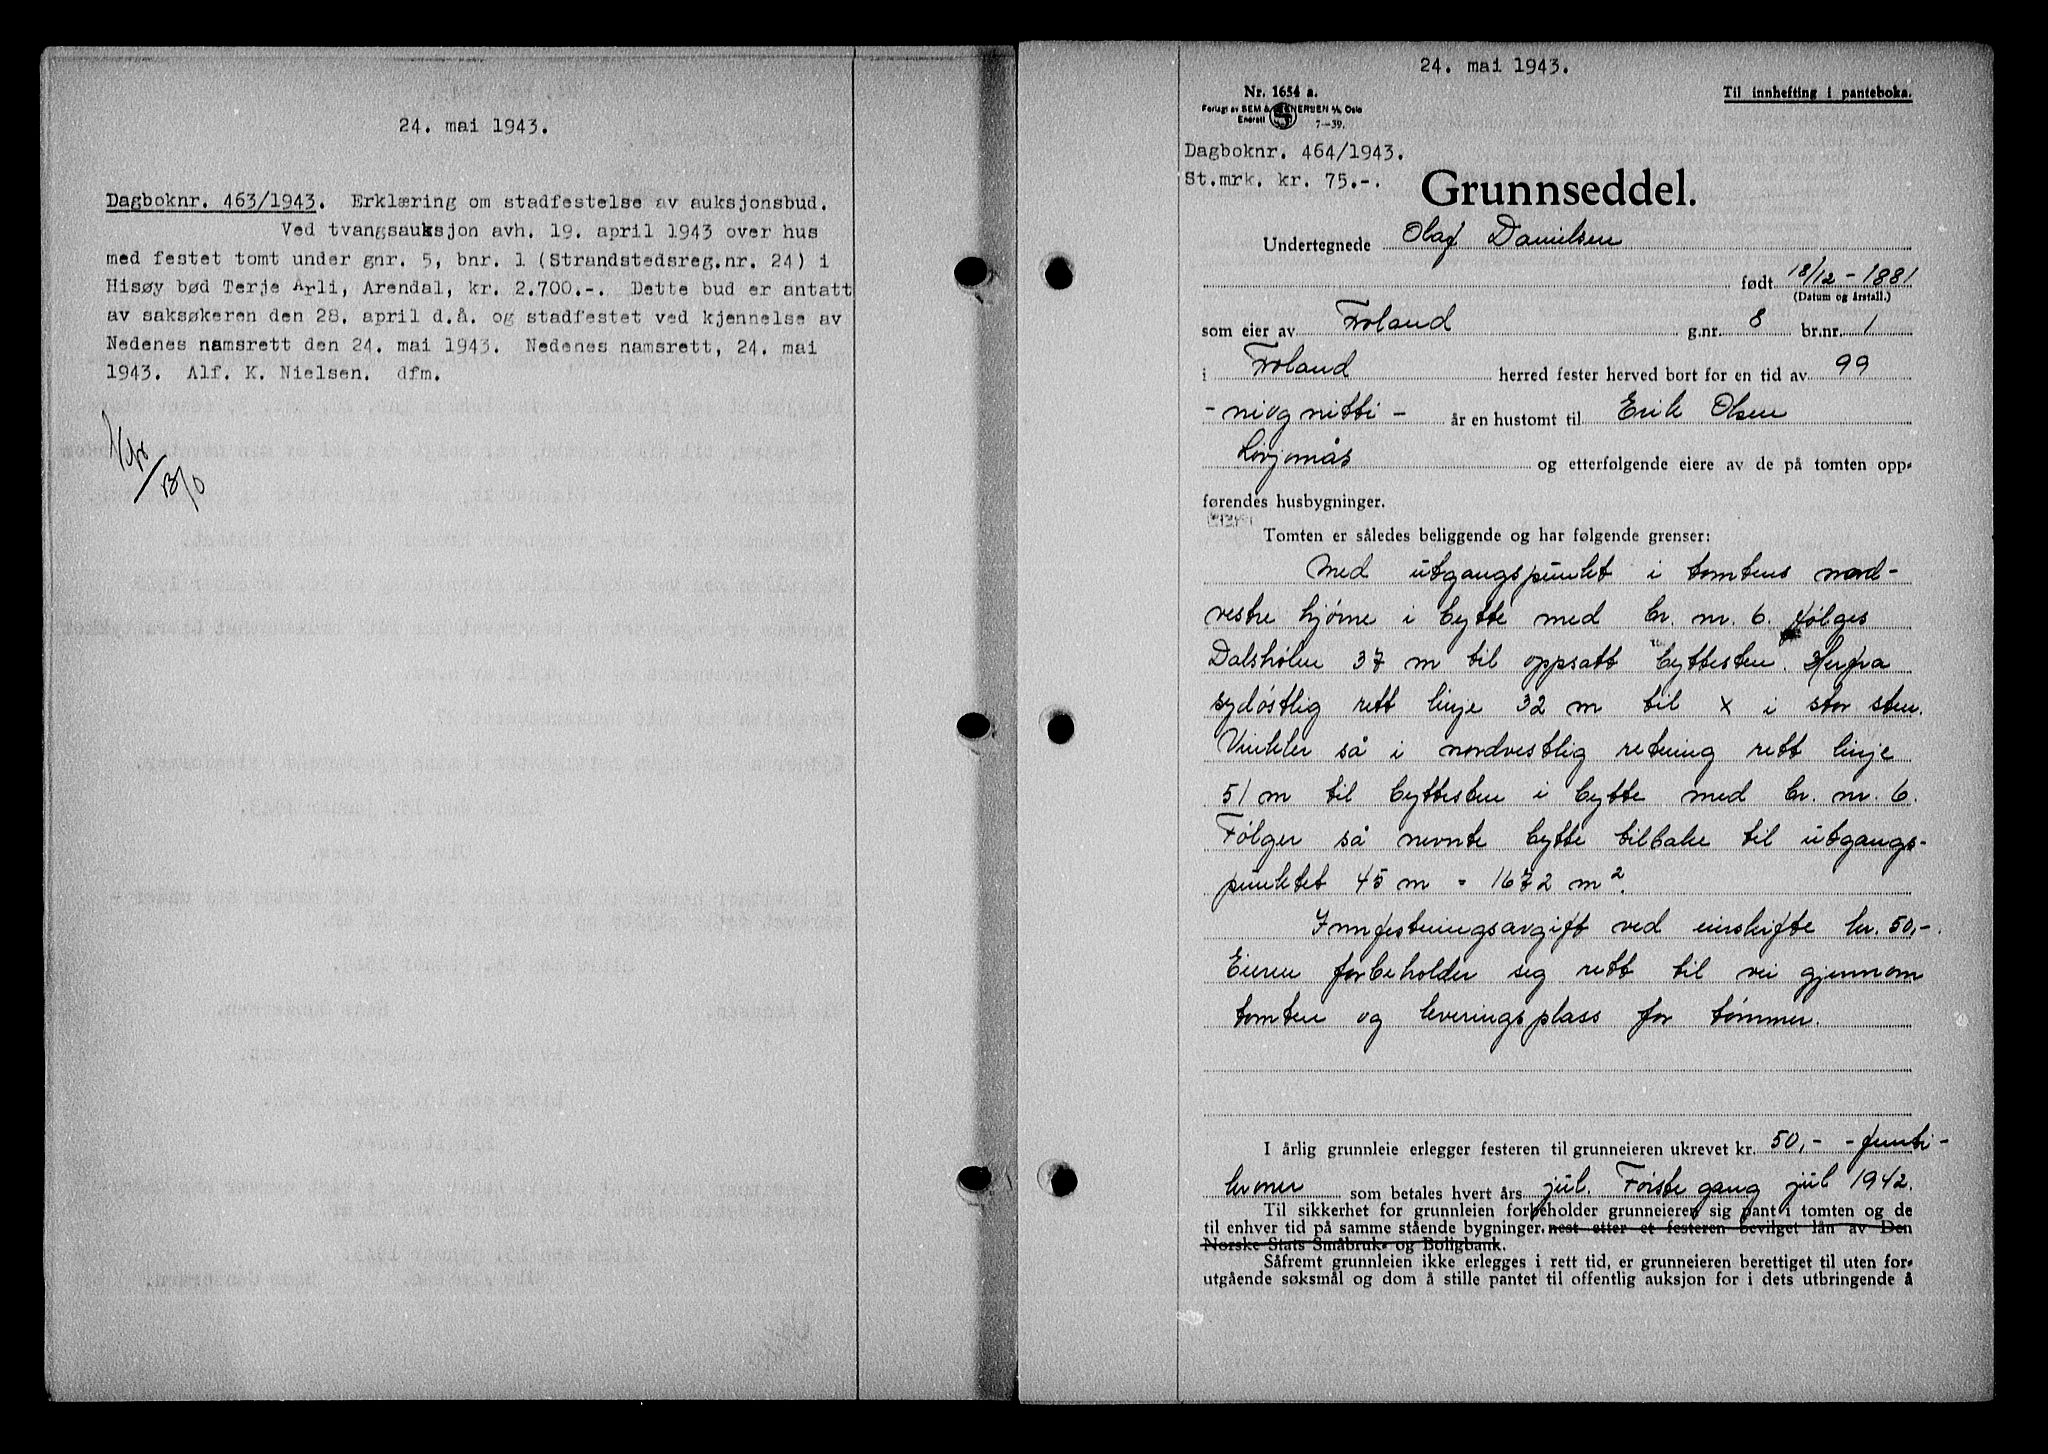 24. mai 1943.
Dagboknr. 463/1943. Erklæring om stadfestelse av auksjonsbud.
Ved tvangsauksjon avh. 19. april 1943 over hus
med festet tomt under gnr. 5, bnr. 1 (Strandstedsreg.nr. 24) i
Hisøy bød Terje Arli, Arendal, kr. 2.700.-. Dette bud er antatt
av saksøkeren den 28. april d.å. og stadfestet ved kjennelse av
Nedenes namsrett den 24. mai 1943. Nedenes namsrett, 24. mai
1943. Alf. K. Nielsen. dfm.
24. mai 1943.
Nr. 1654 a.
Til innhefting i panteboka.
Forlagt av SEM & STENERSEN A/S, Oslo
Enerett
7-39.
Dagboknr. 464/1943.
St.mrk. kr. 75.-.
Grunnseddel.
Undertegnede Olaf Danielsen
født 18/12-1881
(Datum og årstall.)
som eier av Froland g.nr. 8 br.nr. 1
i Froland herred fester herved bort for en tid av 99
- niognitti - år en hustomt til Erik Olsen
Lovjomås og etterfølgende eiere av de på tomten opp-
førendes husbygninger.
Tomten er således beliggende og har følgende grenser:
Med utgangspunkt i tomtens nord-
vestre hjørne i bytte med br. nr. 6. følges
Dalshølen 37 m til oppsatt byttesten. Herfra
sydøstlig rett linje 32 m til x i stor sten.
Vinkler så i nordvestlig retning rett linje
51 m til byttesten i bytte med br. nr. 6.
Følger så nevnte bytte tilbake til utgangs-
punktet 45 m = 1672 m².
Innfestningsavgift ved einskifte kr. 50,-.
Eieren forbeholder seg rett til vei gjennom
tomten og leveringsplass for tømmer.
I årlig grunnleie erlegger festeren til grunneieren ukrevet kr. 50,- - femti -
kroner som betales hvert års jul. Første gang jul 1942.
Til sikkerhet for grunnleien forbeholder grunneieren sig pant i tomten og de
til enhver tid på samme stående bygninger. nest etter et festeren bevilget lån av Den
Norske Stats Småbruk- og Boligbank.
Såfremt grunnleien ikke erlegges i rett tid, er grunneieren berettiget til uten for-
utgående søksmål og dom å stille pantet til offentlig auksjon for i dets utbringende å